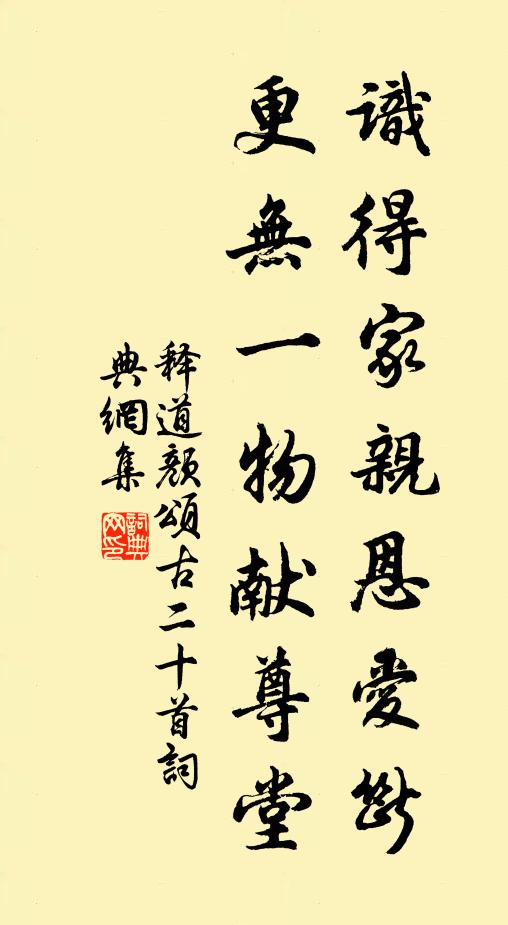 識得家親恩愛斷
更無一物献尊堂
释道颜頌古二十首詞
典網集
詞典网印